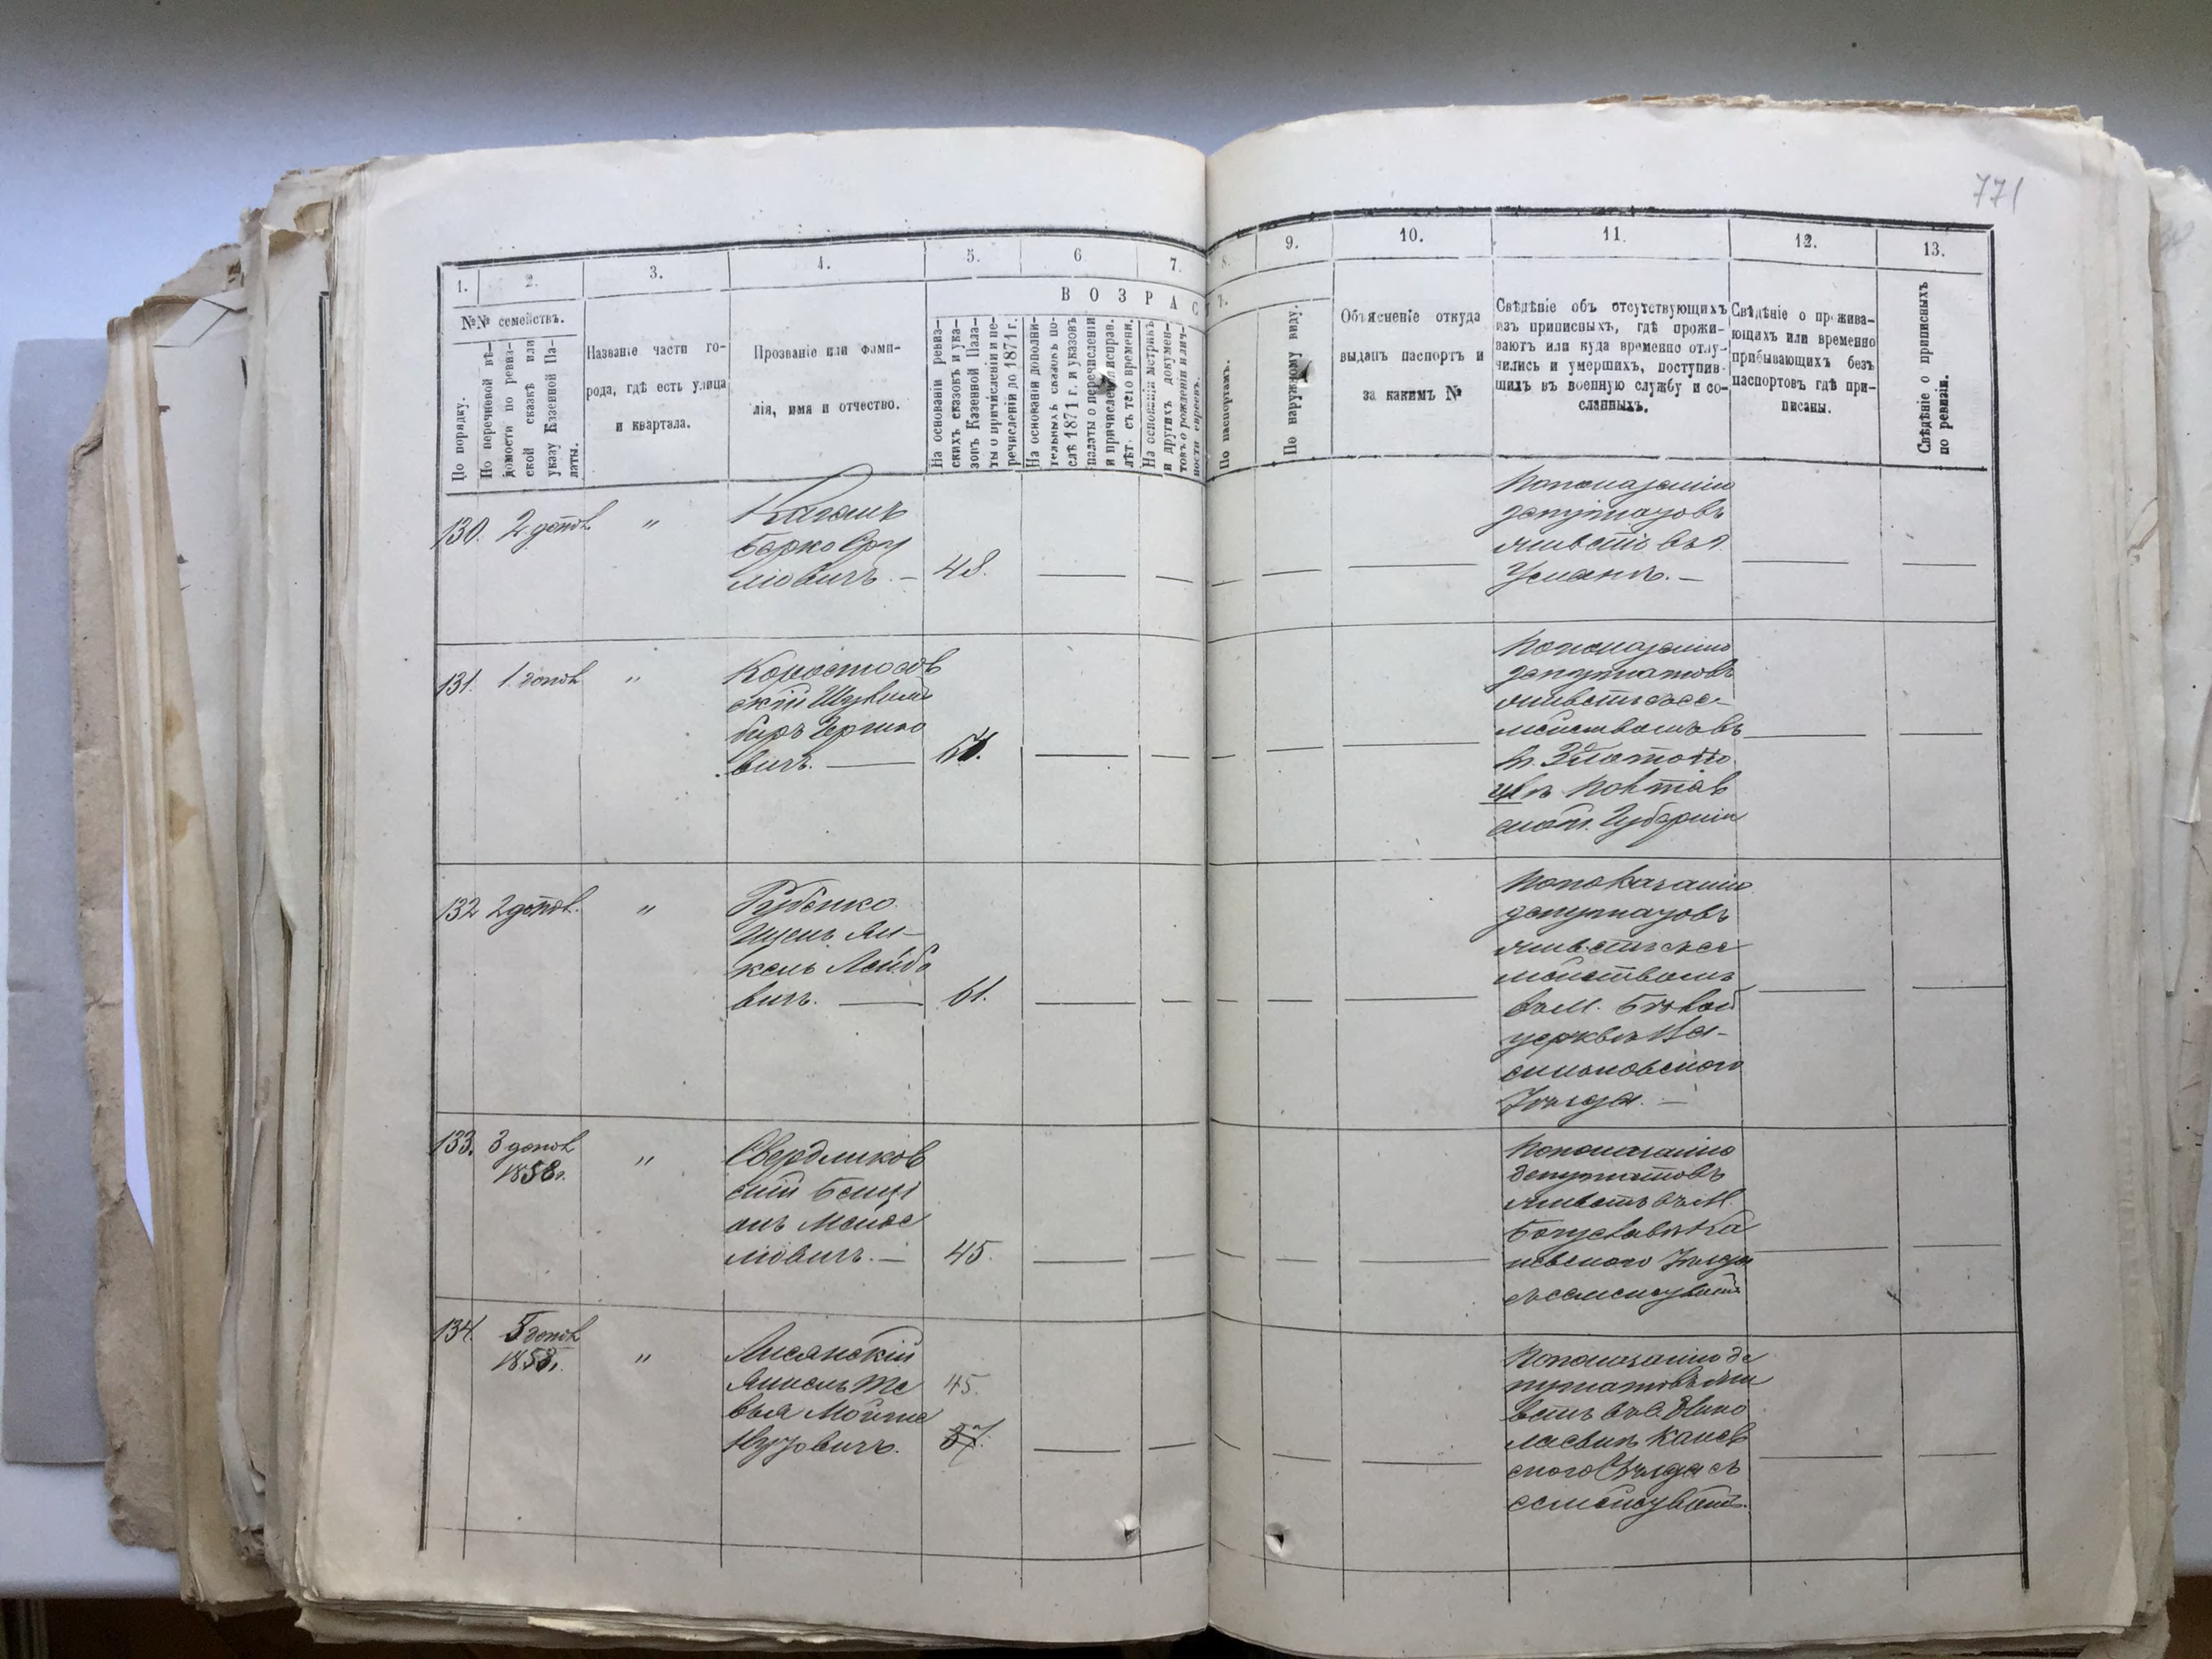 771
1. 2. 3. 4. 5. 6 7. 8. 9. 10. 11. 12. 13.
В О З Р А С
№№ семействъ.
По порядку.
По перечневой вѣ-
домости по ревиз-
ской сказкѣ или
указу Казенной Па-
латы.
Названіе части го-
рода, гдѣ есть улица
и квартала.
Прозваніе или фами-
лія, имя и отчество.
На основаніи ревиз-
скихъ сказокъ и ука-
зовъ Казенной Пала-
ты о причисленіи и пе-
речисленіи до 1871 г.
На основаніи дополни-
тельныхъ сказокъ по-
слѣ 1871 г. и указовъ
палаты о перечисленіи
и причисленіи исправ.
лѣт. съ того времени.
На основаніи метрикъ
и другихъ докумен-
товъ о рожденіи и лич-
ности евреевъ.
По паспортамъ.
По наружному виду.
Объясненіе откуда
выданъ паспортъ и
за какимъ №
Свѣдѣніе объ отсутствующихъ
изъ приписныхъ, гдѣ прожи-
ваютъ или куда временно отлу-
чились и умершихъ, поступив-
шихъ въ военную службу и со-
сланныхъ.
Свѣдѣніе о прожива-
ющихъ или временно
прибывающихъ безъ
паспортовъ гдѣ при-
писаны.
Свѣдѣніе о приписныхъ
по ревизіи.
130. 2 допов. "
Каганъ
Берко Сру
ліовичъ. — 48.
По показанію
депутатовъ
живетъ въ г.
Умани. —
131. 1 допов. "
Коростов
скій
Гершко
вичъ. —
По показанію
депутатовъ
живетъ съ се-
мействомъ въ
г. Золотоно
Полтав
ской Губерніи
132 2 допов. "
Рубенко
Ицень Ян-
кель Лейбо
вичъ. — 61.
По показанію
депутатовъ
живетъ съ се
мействомъ
въ м. Бѣлой
церквѣ Ва-
сильковского
Уѣзда. —
133. 3 допов
1858г. "
Свердликов
скій Бенці
онъ
ліовичъ. — 45.
По показанію
депутатовъ
живетъ въ м.
Богуславѣ Ка
невского Уѣзда
съ семействомъ
134. 5 допов
1858г. "
Лисянскій
Янкель Те
вья Мойше
Нузовичъ.
45.
37.
По показанію де
путатовъ жи
ветъ въ
Канев
ского Уѣзда съ
семействомъ.